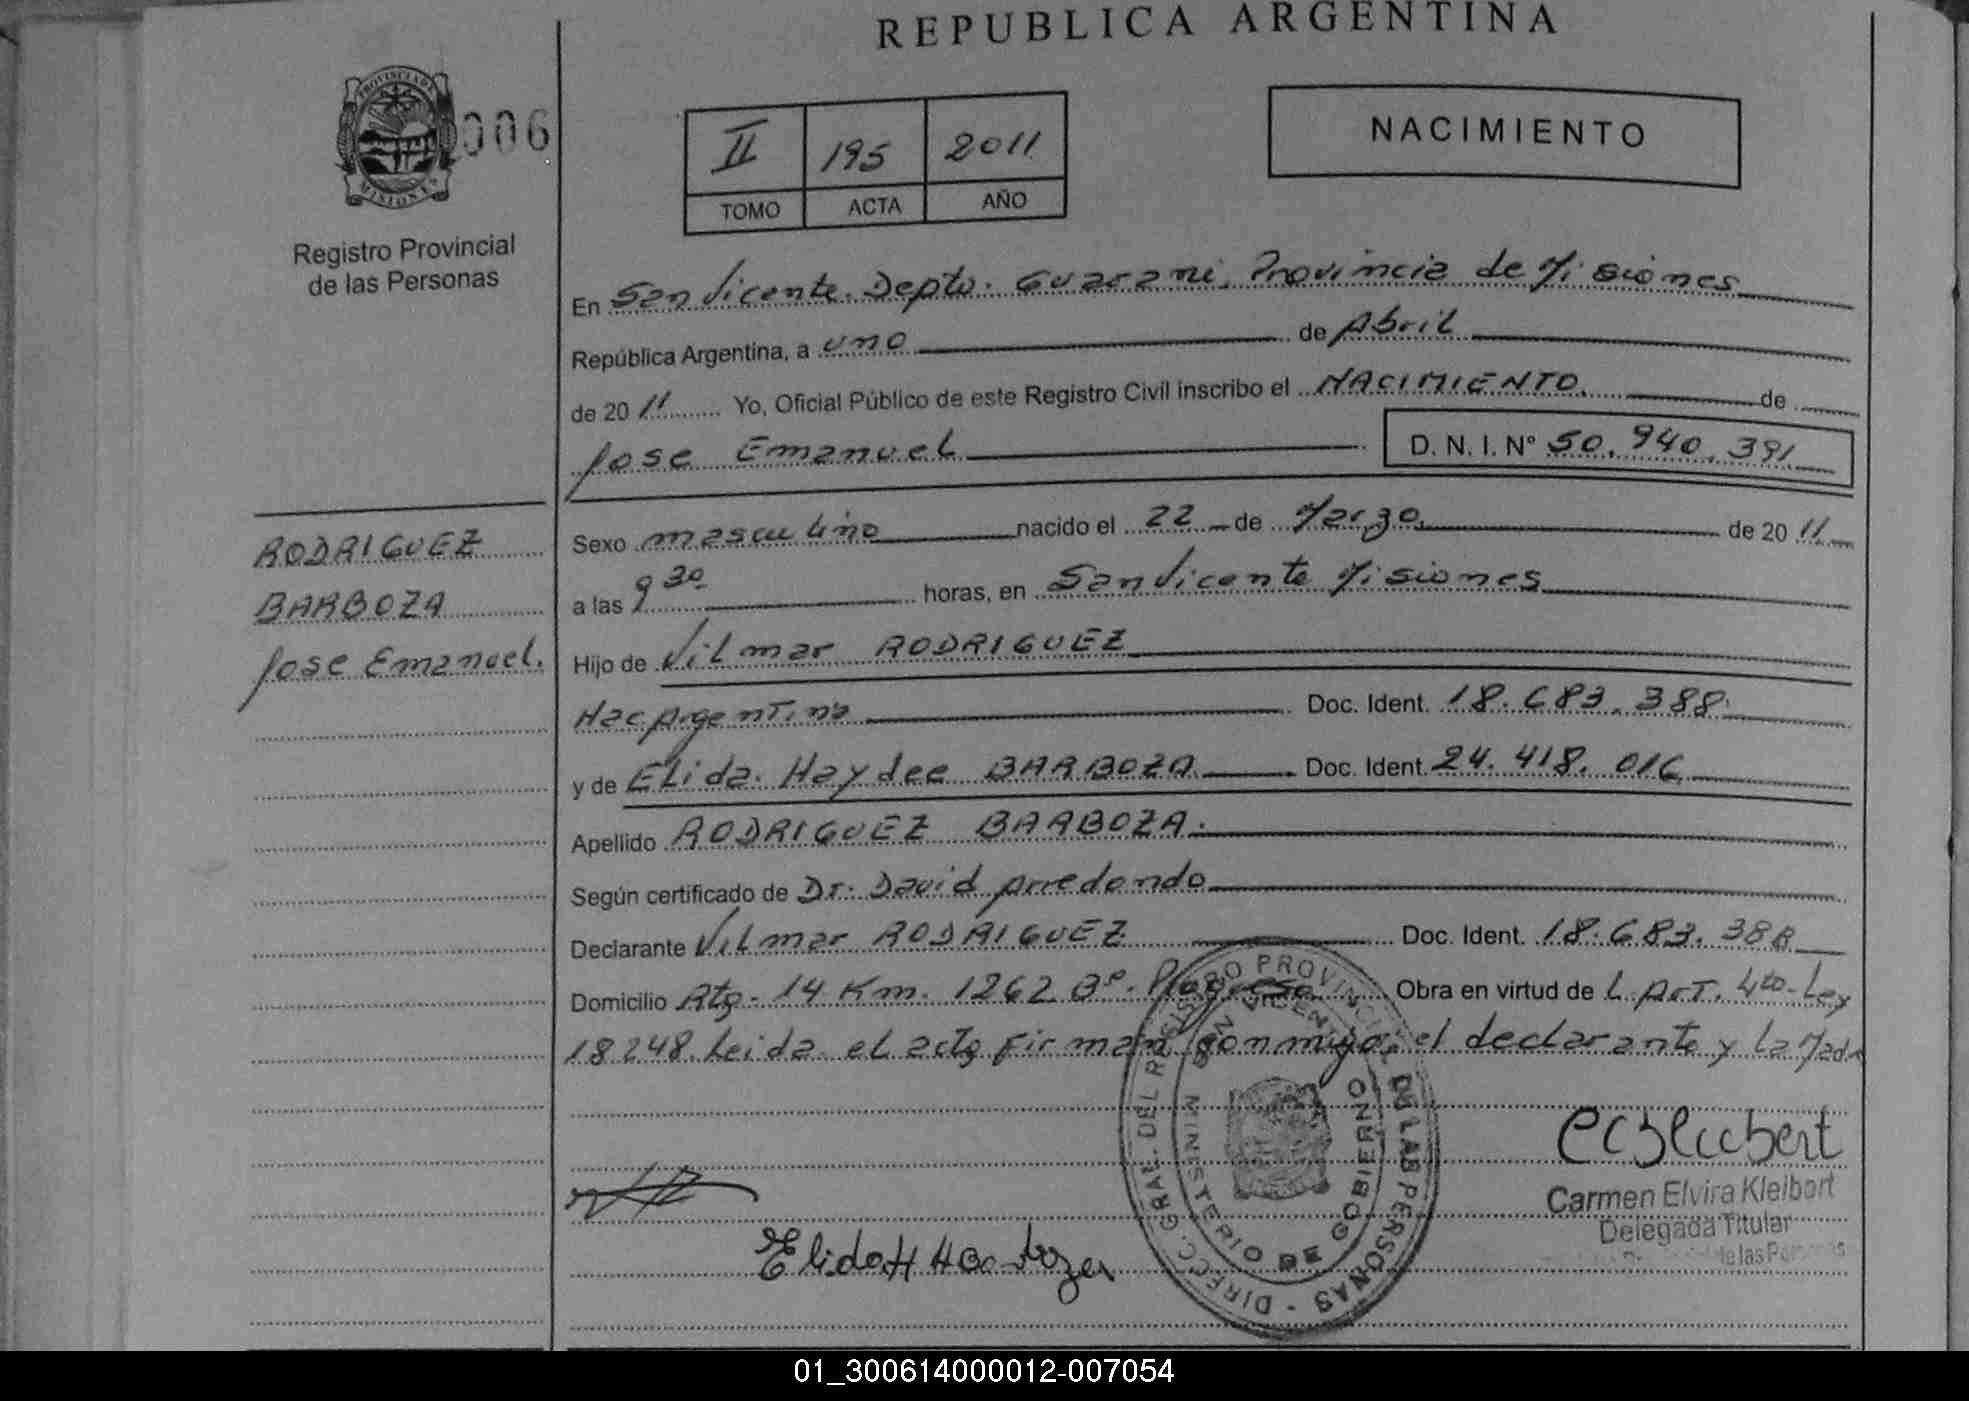 REPUBLICA ARGENTINA
PROVINCIA DE
MISIONES
006
Registro Provincial
de las Personas
II 195 2011
TOMO ACTA AÑO
NACIMIENTO
En San Vicente. Depto. Guarani. Provincia de Misiones
República Argentina, a uno de Abril
de 2011 Yo, Oficial Público de este Registro Civil inscribo el NACIMIENTO. de
Jose Emanuel D. N. I. N° 50. 940. 391
RODRIGUEZ
BARBOZA
Jose Emanuel.
Sexo masculino nacido el 22 de Marzo de 2011
a las 9 30 horas, en San Vicente Misiones
Hijo de Vilmar RODRIGUEZ
Nac Argentina Doc. Ident. 18. 683. 388
y de Elida. Haydee BARBOZA Doc. Ident. 24. 418. 016
Apellido RODRIGUEZ BARBOZA.
Según certificado de Dr. David Arredondo
Declarante Vilmar RODRIGUEZ Doc. Ident. 18. 683. 388
Domicilio Rta. 14 Km. 1262 B°. Obra en virtud de L. Art. 4to. Ley
18248. Leida el acta firman conmigo: el declarante y la Madre
DIRECC. GRAL. DEL REGISTRO PROVINCIAL DE LAS PERSONAS
MINISTERIO DE GOBIERNO
SAN VICENTE
Carmen Elvira Kleibert
Delegada Titular
de las Personas
01_300614000012-007054